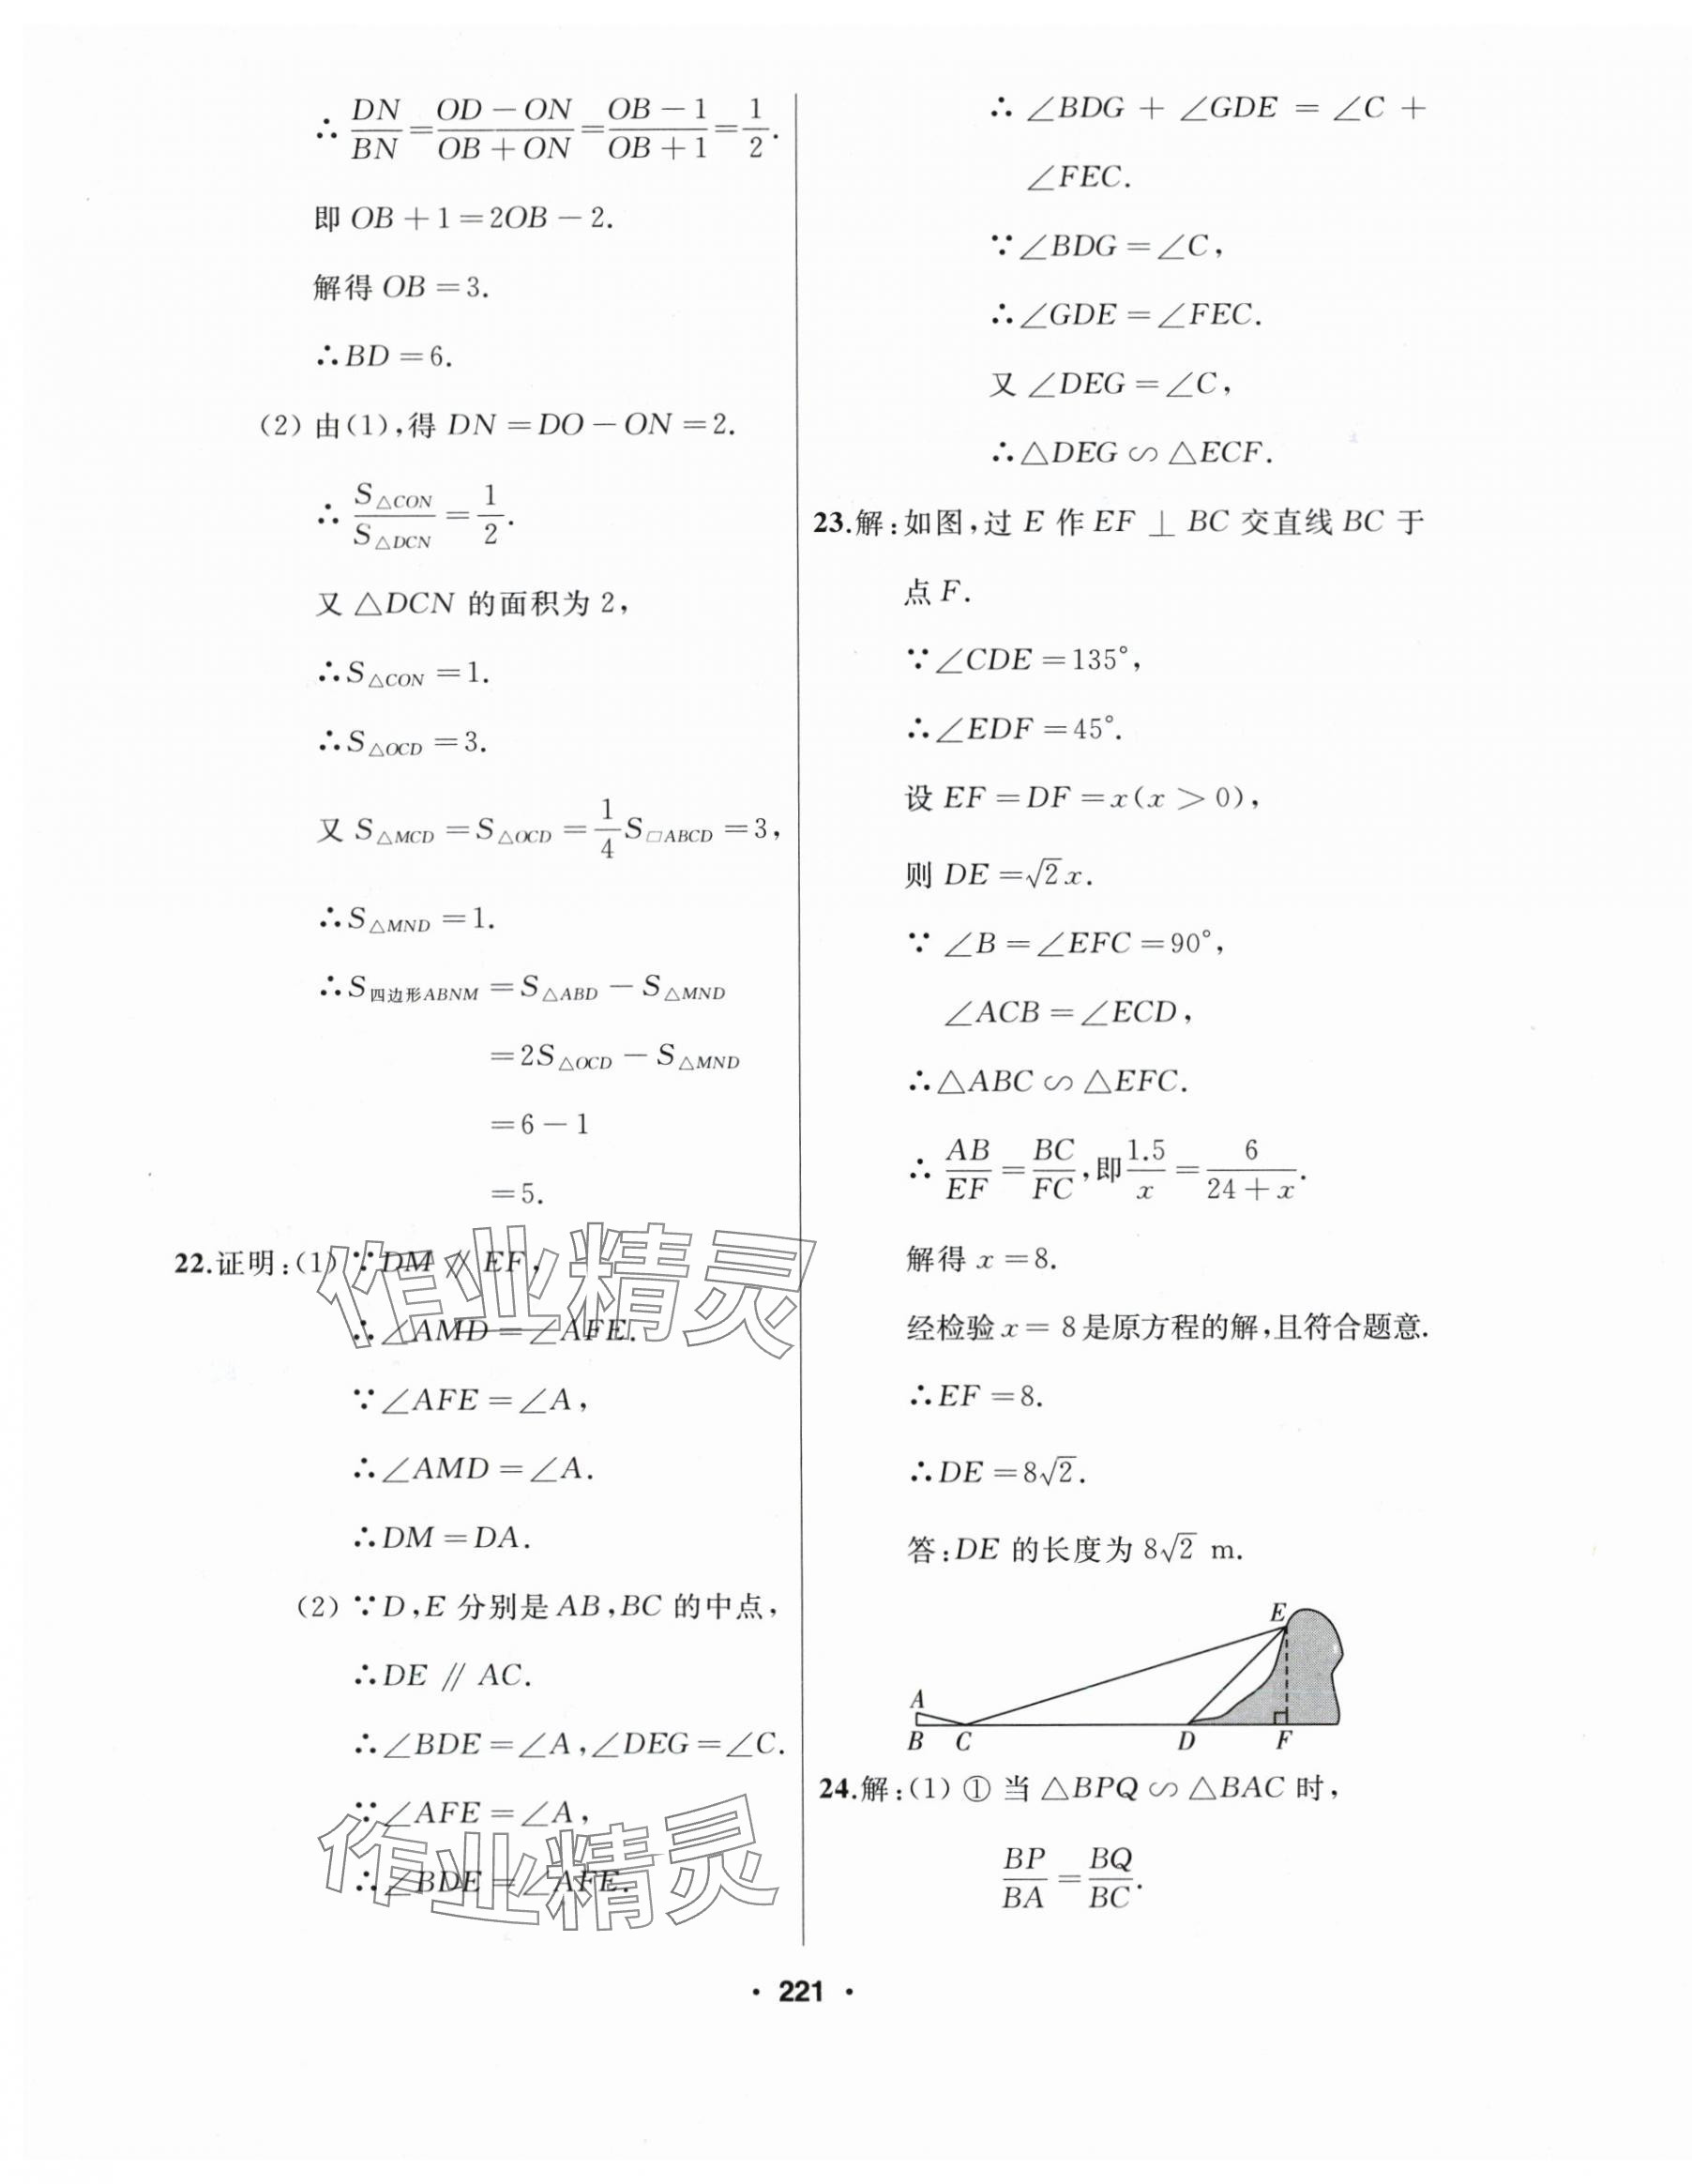 ∴ DN/BN = (OD－ON)/(OB＋ON) = (OB－1)/(OB＋1) = 1/2.
即 OB＋1＝2OB－2.
解得 OB＝3.
∴BD＝6.
(2) 由(1),得 DN＝DO－ON＝2.
∴ S△CON/S△DCN ＝ 1/2.
又 △DCN 的面积为 2,
∴S△CON＝1.
∴S△OCD＝3.
又 S△MCD＝S△OCD＝1/4 S□ABCD＝3,
∴S△MND＝1.
∴S四边形ABNM＝S△ABD－S△MND
＝2S△OCD－S△MND
＝6－1
＝5.
22.证明:(1) ∵DM∥EF,
∴∠AMD＝∠AFE.
∵∠AFE＝∠A,
∴∠AMD＝∠A.
∴DM＝DA.
(2) ∵D,E 分别是 AB,BC 的中点,
∴DE∥AC.
∴∠BDE＝∠A,∠DEG＝∠C.
∵∠AFE＝∠A,
∴∠BDE＝∠AFE.
∴ ∠BDG＋∠GDE＝∠C＋
∠FEC.
∵∠BDG＝∠C,
∴∠GDE＝∠FEC.
又 ∠DEG＝∠C,
∴△DEG∽△ECF.
23.解:如图,过 E 作 EF⊥BC 交直线 BC 于
点 F.
∵∠CDE＝135°,
∴∠EDF＝45°.
设 EF＝DF＝x(x＞0),
则 DE＝√2x.
∵ ∠B＝∠EFC＝90°,
∠ACB＝∠ECD,
∴△ABC∽△EFC.
∴ AB/EF＝BC/FC,即 1.5/x＝6/(24＋x).
解得 x＝8.
经检验 x＝8 是原方程的解,且符合题意.
∴EF＝8.
∴DE＝8√2.
答:DE 的长度为 8√2 m.
E
A
B C D F
24.解:(1) ① 当 △BPQ∽△BAC 时,
BP/BA＝BQ/BC.
· 221 ·
作业精灵
作业精灵